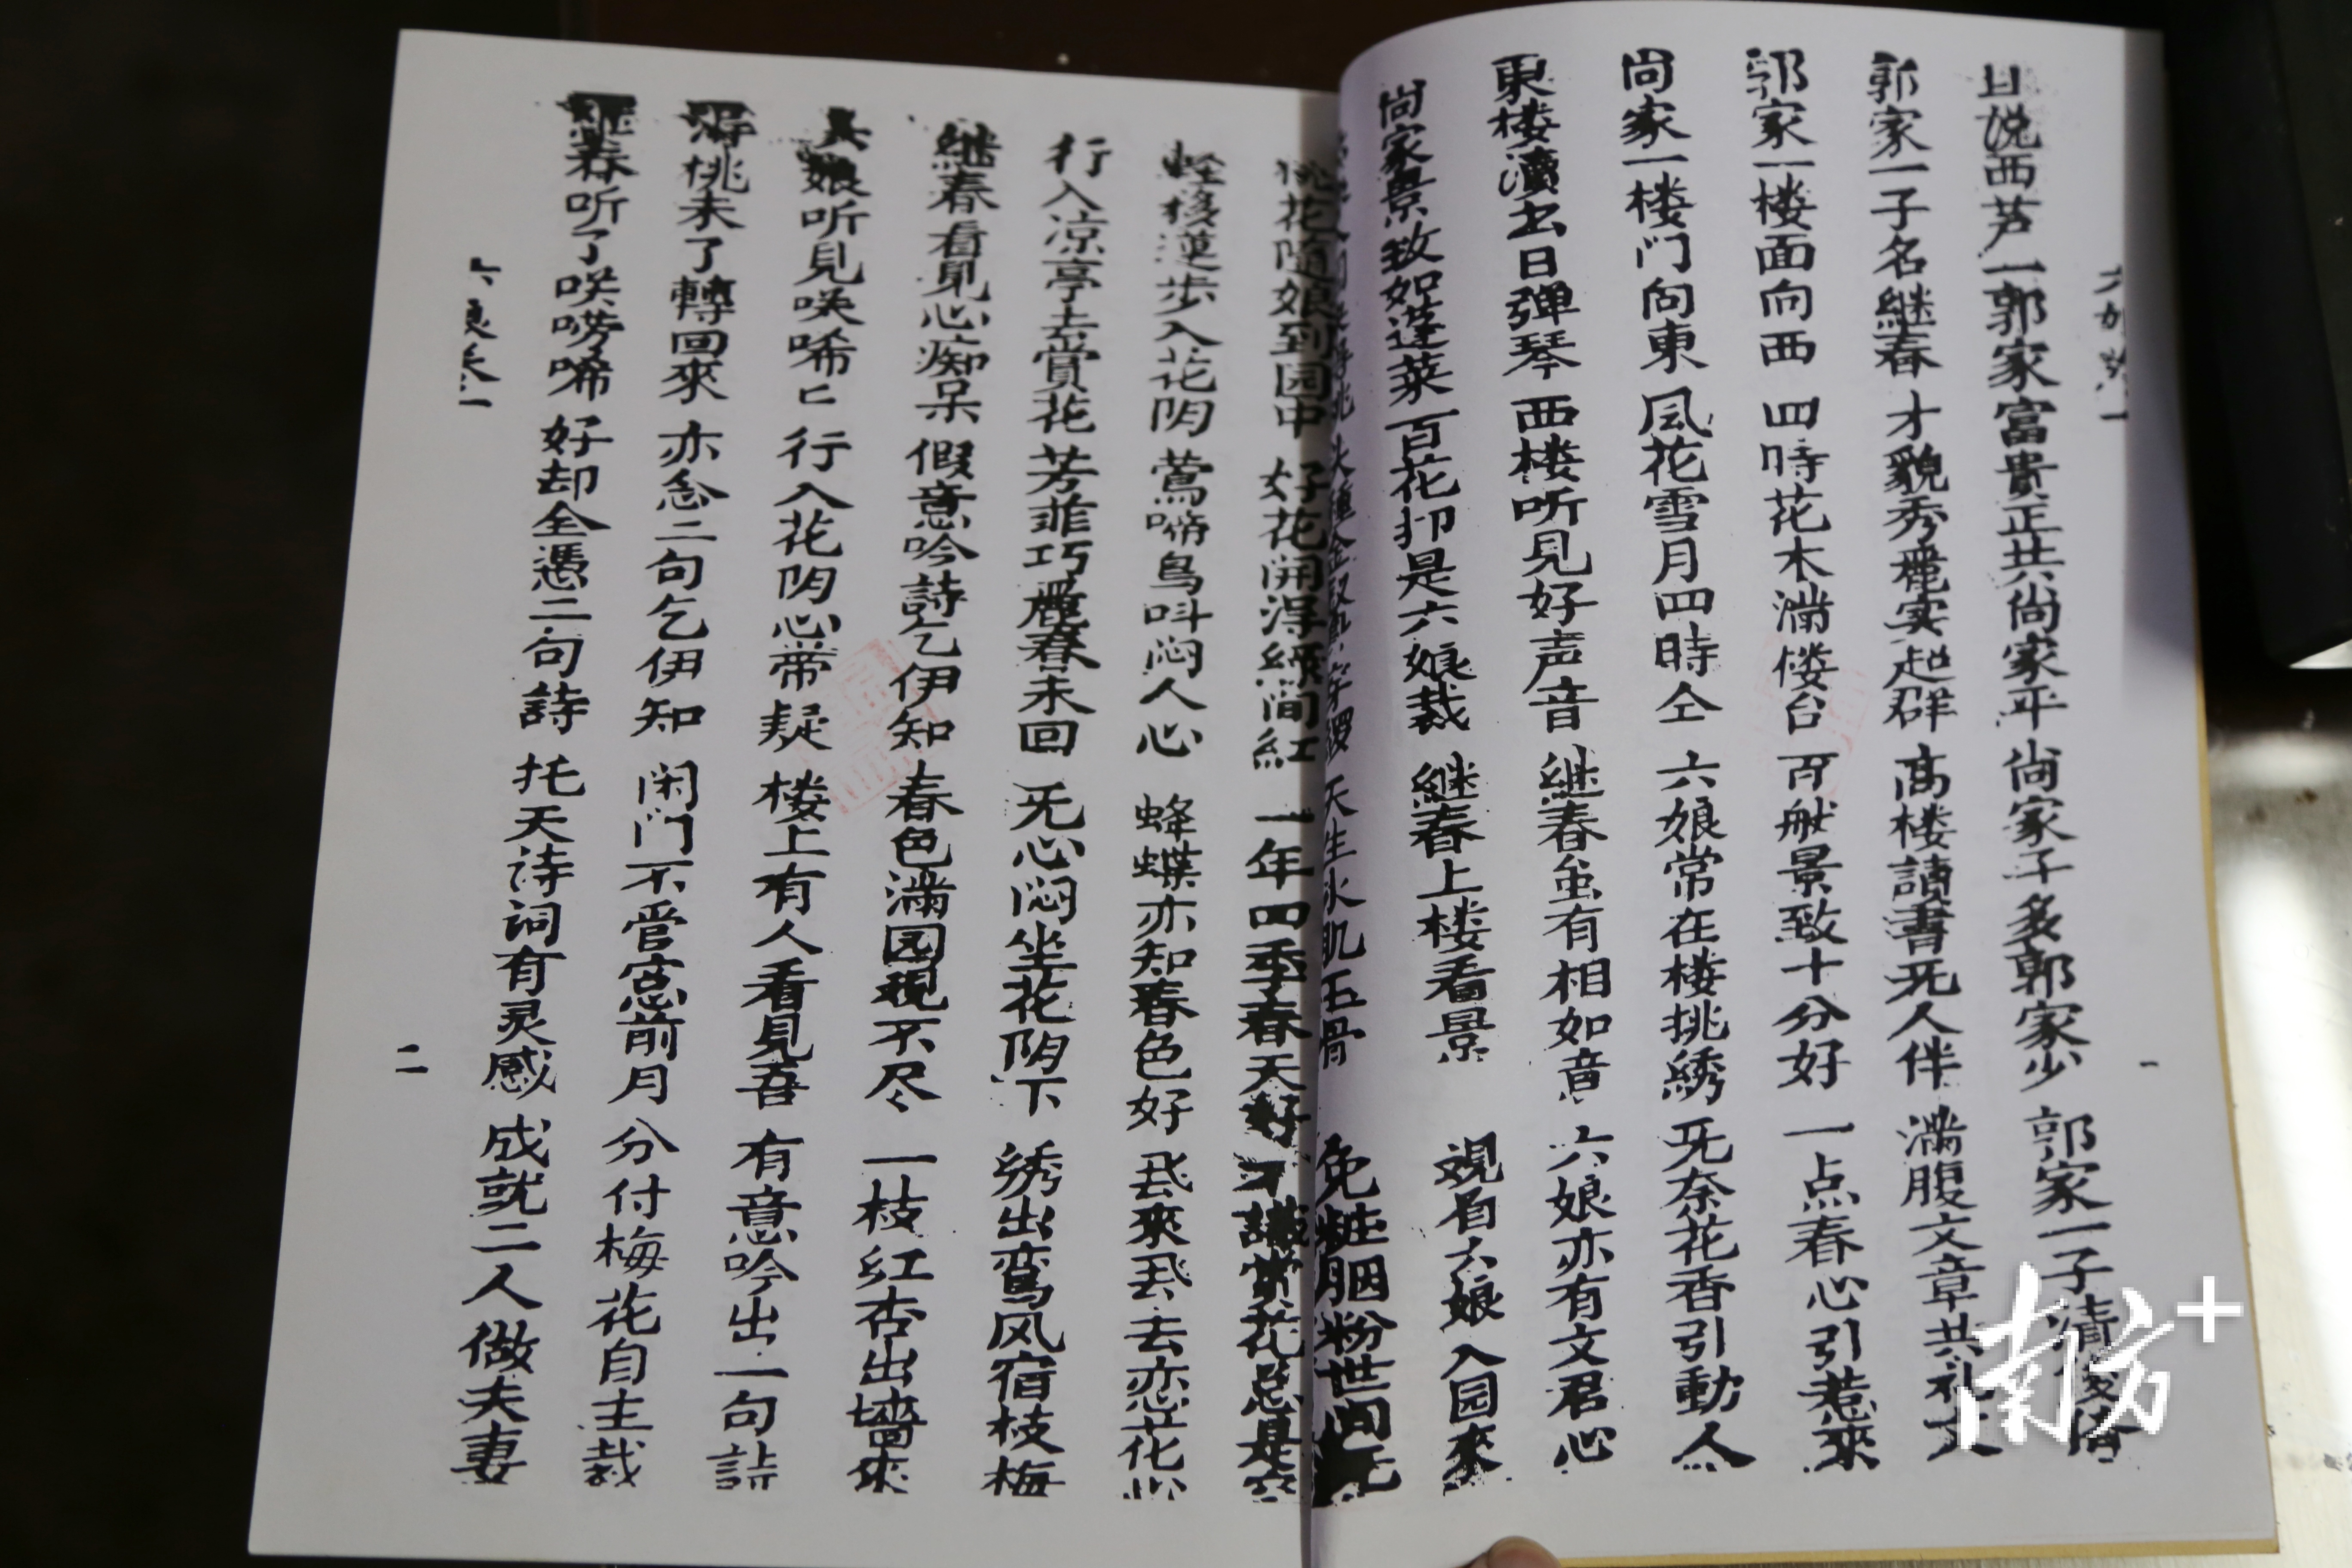 日説西芦一郭家 富貴正共尚家平 尚家子多郭家少 郭家一子
郭家一子名継春 才貌秀麗実超群 高楼讀書旡人伴 滿腹文章共礼
郭家一楼面向西 四時花木滿楼台 百般景致十分好 一点春心引惹來
尚家一楼门向東 风花雪月四時仝 六娘常在楼挑綉 旡奈花香引動人
東楼瀆出日弹琴 西楼听見好声音 継春虽有相如意 六娘亦有文君心
尚家景致如蓬莱 百花抑是六娘栽 継春上楼看景 观看六娘入园來
天生氷肌玉骨 免粧胭粉世间旡
桃花随娘到园中 好花開浮緑间紅 一年四季春天好 不識赏花总是空
輕移莲步入花阴 莺啼鳥叫闷人心 蜂蝶亦知春色好 飛來飛去恋花心
行入凉亭去賞花 芳菲巧麗春未回 旡心闷坐花阴下 绣出鸾风宿枝梅
継春看見心痴呆 假意吟詩乞伊知 春色滿园观不尽 一枝红杏出墻來
娘听見咲唏匕 行入花阴心帶疑 楼上有人看見吾 有意吟出一句詩
桃未了轉回來 亦念二句乞伊知 闲门不管窓前月 分付梅花自主裁
継春听了咲唠唏 好却全憑二句詩 托天诗词有灵感 成就二人做夫妻
一
二
南方+